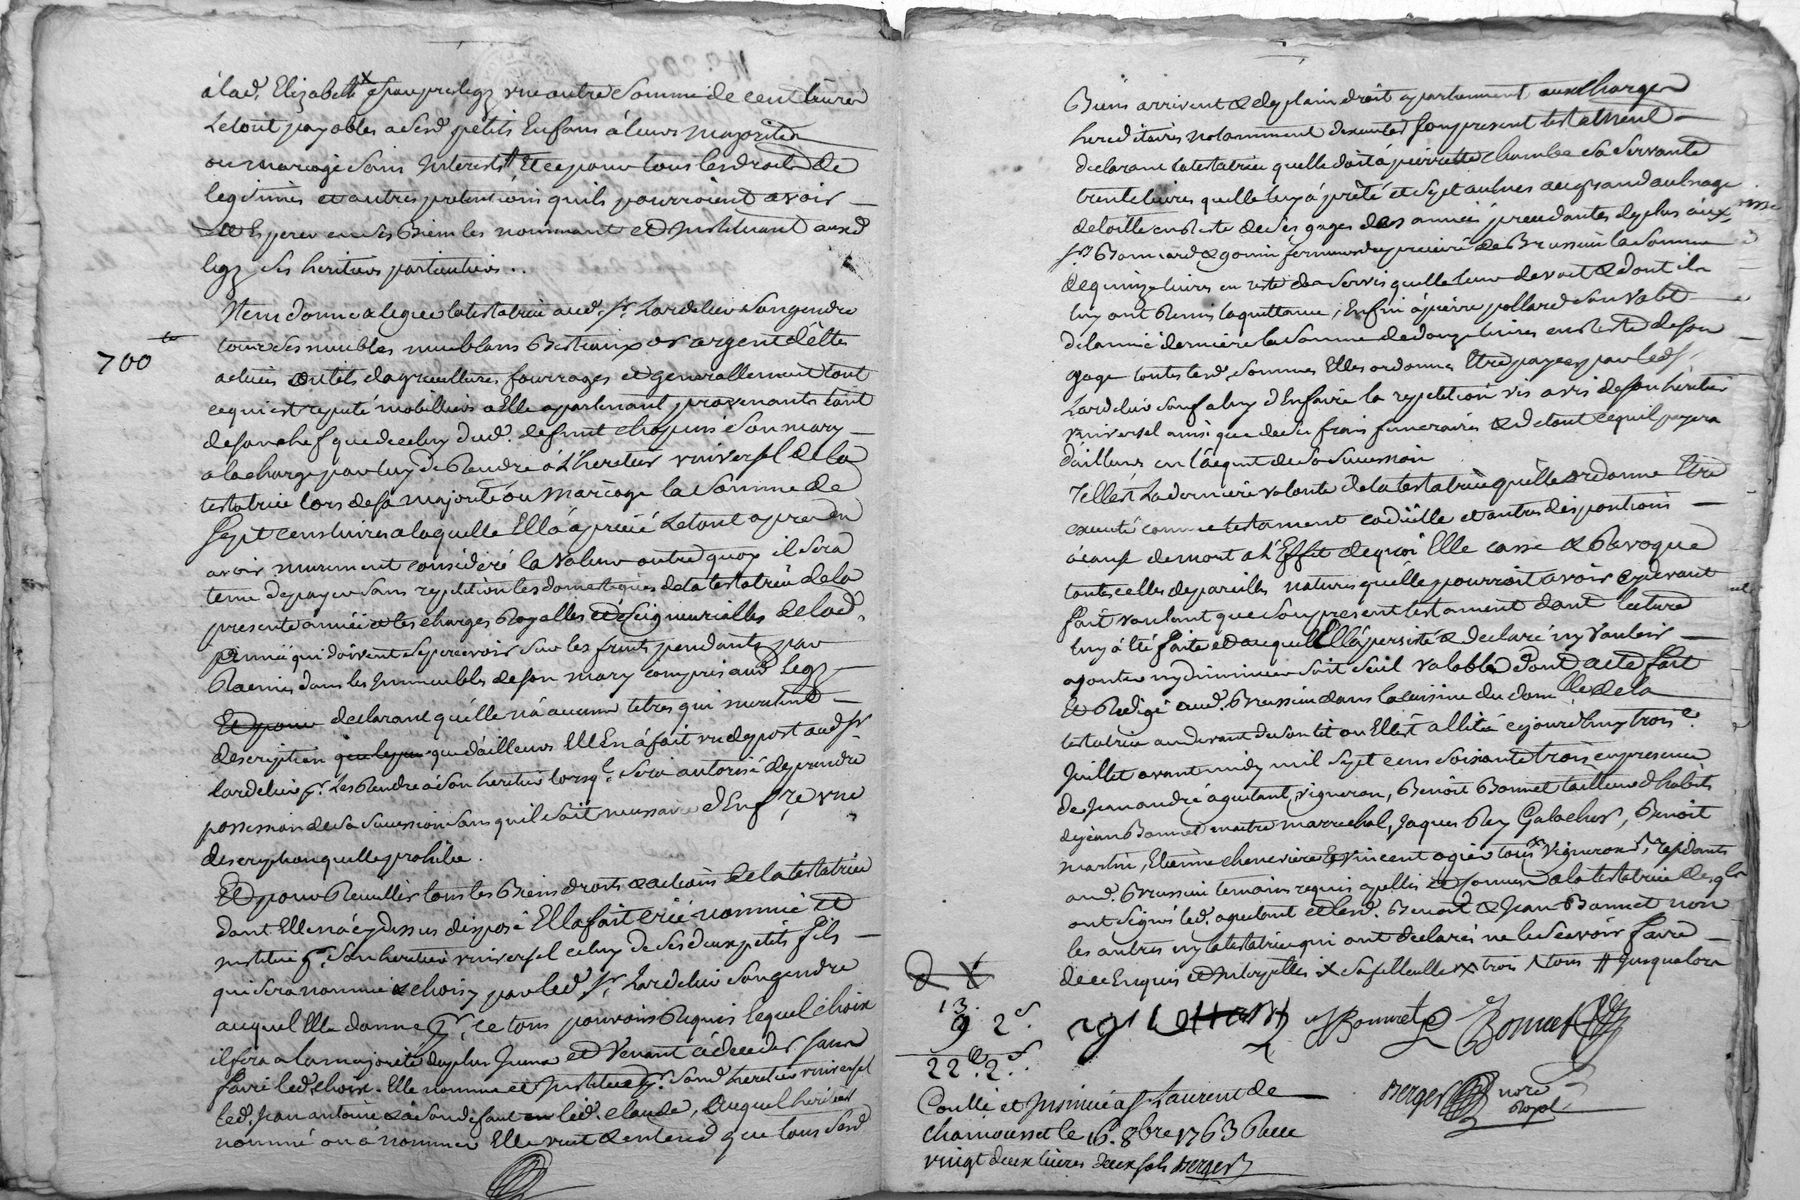 à lad. Elizabeth x par prelegz une autre somme de cent livres
Le tout payables a sesd. petits Enfans à leurs majorités
ou mariage sans Interests Et ce pour tous les droits de
legitimes et autres pretensions qu'ils pourroient avoir
et Esperer en ses Biens les nommant et Instituant auxd
legz ses heritiers particuliers..
Item donne et legue la testatrice aud. Sr. Lardelier son gendre
700 tt
tous ses meubles meublans Bestiaux or argent dêttes
actives outils d'agricultures fourrages et generallement tout
ce qui est reputé mobilliers a Elle apartenant provenants tant
de son chef que de celuy dud. defunt chapuis son mary
a la charge par luy de Rendre à L'heretier universel de la
testatrice lors de sa majorité ou mariage la somme de
sept cens livres a laquelle Ella aprecié Le tout apres en
avoir murement considéré la valeur outre quoy il sera
tenu de payer sans repetition les domestiques de la testatrice de la
presente année et les charges Royalles et Seigneurialles de lad.
année qui doivent se percevoir sur les fruits pendants par
Racines dans les Immeubles de son mary compris aud. legz
Et pour declarant qu'elle n'a aucuns titres qui meritent
description que d'ailleurs Elle En à fait un depost aud. Sr.
lardelier pr. Les Rendre à son heritier lorsql. sera autorisé de prendre
possession de sa succession sans qu'il soit necessaire d'En fre. une
description qu'elle prohibe.
Et pour Recuillir tous les Biens droits & actions de la testatrice
dont Elle n'a cy dessus disposé Ella fait créé nommé et
institué pr. son heritier universel celuy de ses deux petits fils
qui sera nommé & choisy par led. Sr. Lardelier son gendre
auquel Elle donne pr. ce tous pouvoirs Requis lequel choix
il fera a la majorité du plus Jeune et venant à deceder sans
faire led. choix. Elle nomme et Institue pr. sond. heretier universel
led. Jean antoine & à son defaut led. claude, auquel heritier
nommé ou à nommer Elle veut & entend que tous sesd
Biens arrivent & de plain droit apartiennent aux charges
hereditaires notamment d'executer son present testament
declarant la testatrice quelle doit à pierrette chambe sa servante
trente livres quelle luy à prêté et sept aulnes au grand aulnage
de toille en reste de ses gages des années precedantes de plus aux
srs. Bonnard & gonin fermiers du prieuré de Brussieu la somme
de quinze livres en reste des servis quelle leur devoit & dont ils
luy ont Remis la quittance, Enfin à pierre pollard son valet
de l'année derniere la somme de douze livres en Reste de son
gage toutes lesd. sommes Elles ordonne Etre payees par led. Sr.
Lardelier sauf a luy d'En faire la repetition vis avis de son héritier
universel ainsi que de ses frais funeraires & de tout ce quil payera
d'ailleurs en l'acquit de sa succession
Tellest La derniere volonté de la testatrice qu'elle ordonne Etre
executé comme testament codicille et autres dispositions
à cause de mort a l'Effet de quoi Elle casse & Revoque
toutes celles de pareilles natures qu'elle pourroit avoir cy devant
fait voulant que son present testament dont lecture
luy à été faite et auquel Ella persisté & declaré n'y vouloir
ajouter ny diminuer soit seul valable Dont acte fait
Et Redigé aud. Brussieu dans la cuisine du domlle. de la
testatrice au devant du son lit ou Ellest allitée cejourd'huy trois e.
Juillet avant midy mil sept cens soixante trois en presence
de Jean andré aguetant, vigneron, Benoît Bonnet tailleur d'habits
de jean Bonnet maitre marrechal, Jaques Rey Galochez, Benoit
martin, Etienne cheneviere & Vincent ogier tous x vignerons, residants
aud. Brussieu temoins requis apellés et connus a la testatrice desqls
ont signé led. aguetant et lesd. Benoit & Jean Bonnet non
les autres ny la testatrice qui ont declaré ne le Scavoir faire
de ce Enquis et Interpellés x sa filleulle xx trois
13.
9 2s.
22tt. 2s.
Bonnet Bonnet
Berger nore Royal
Conllé et Insinué a St. Laurent de
chamousset le 16. 8bre 1763 Reçu
vingt deux livres deux sols Berger